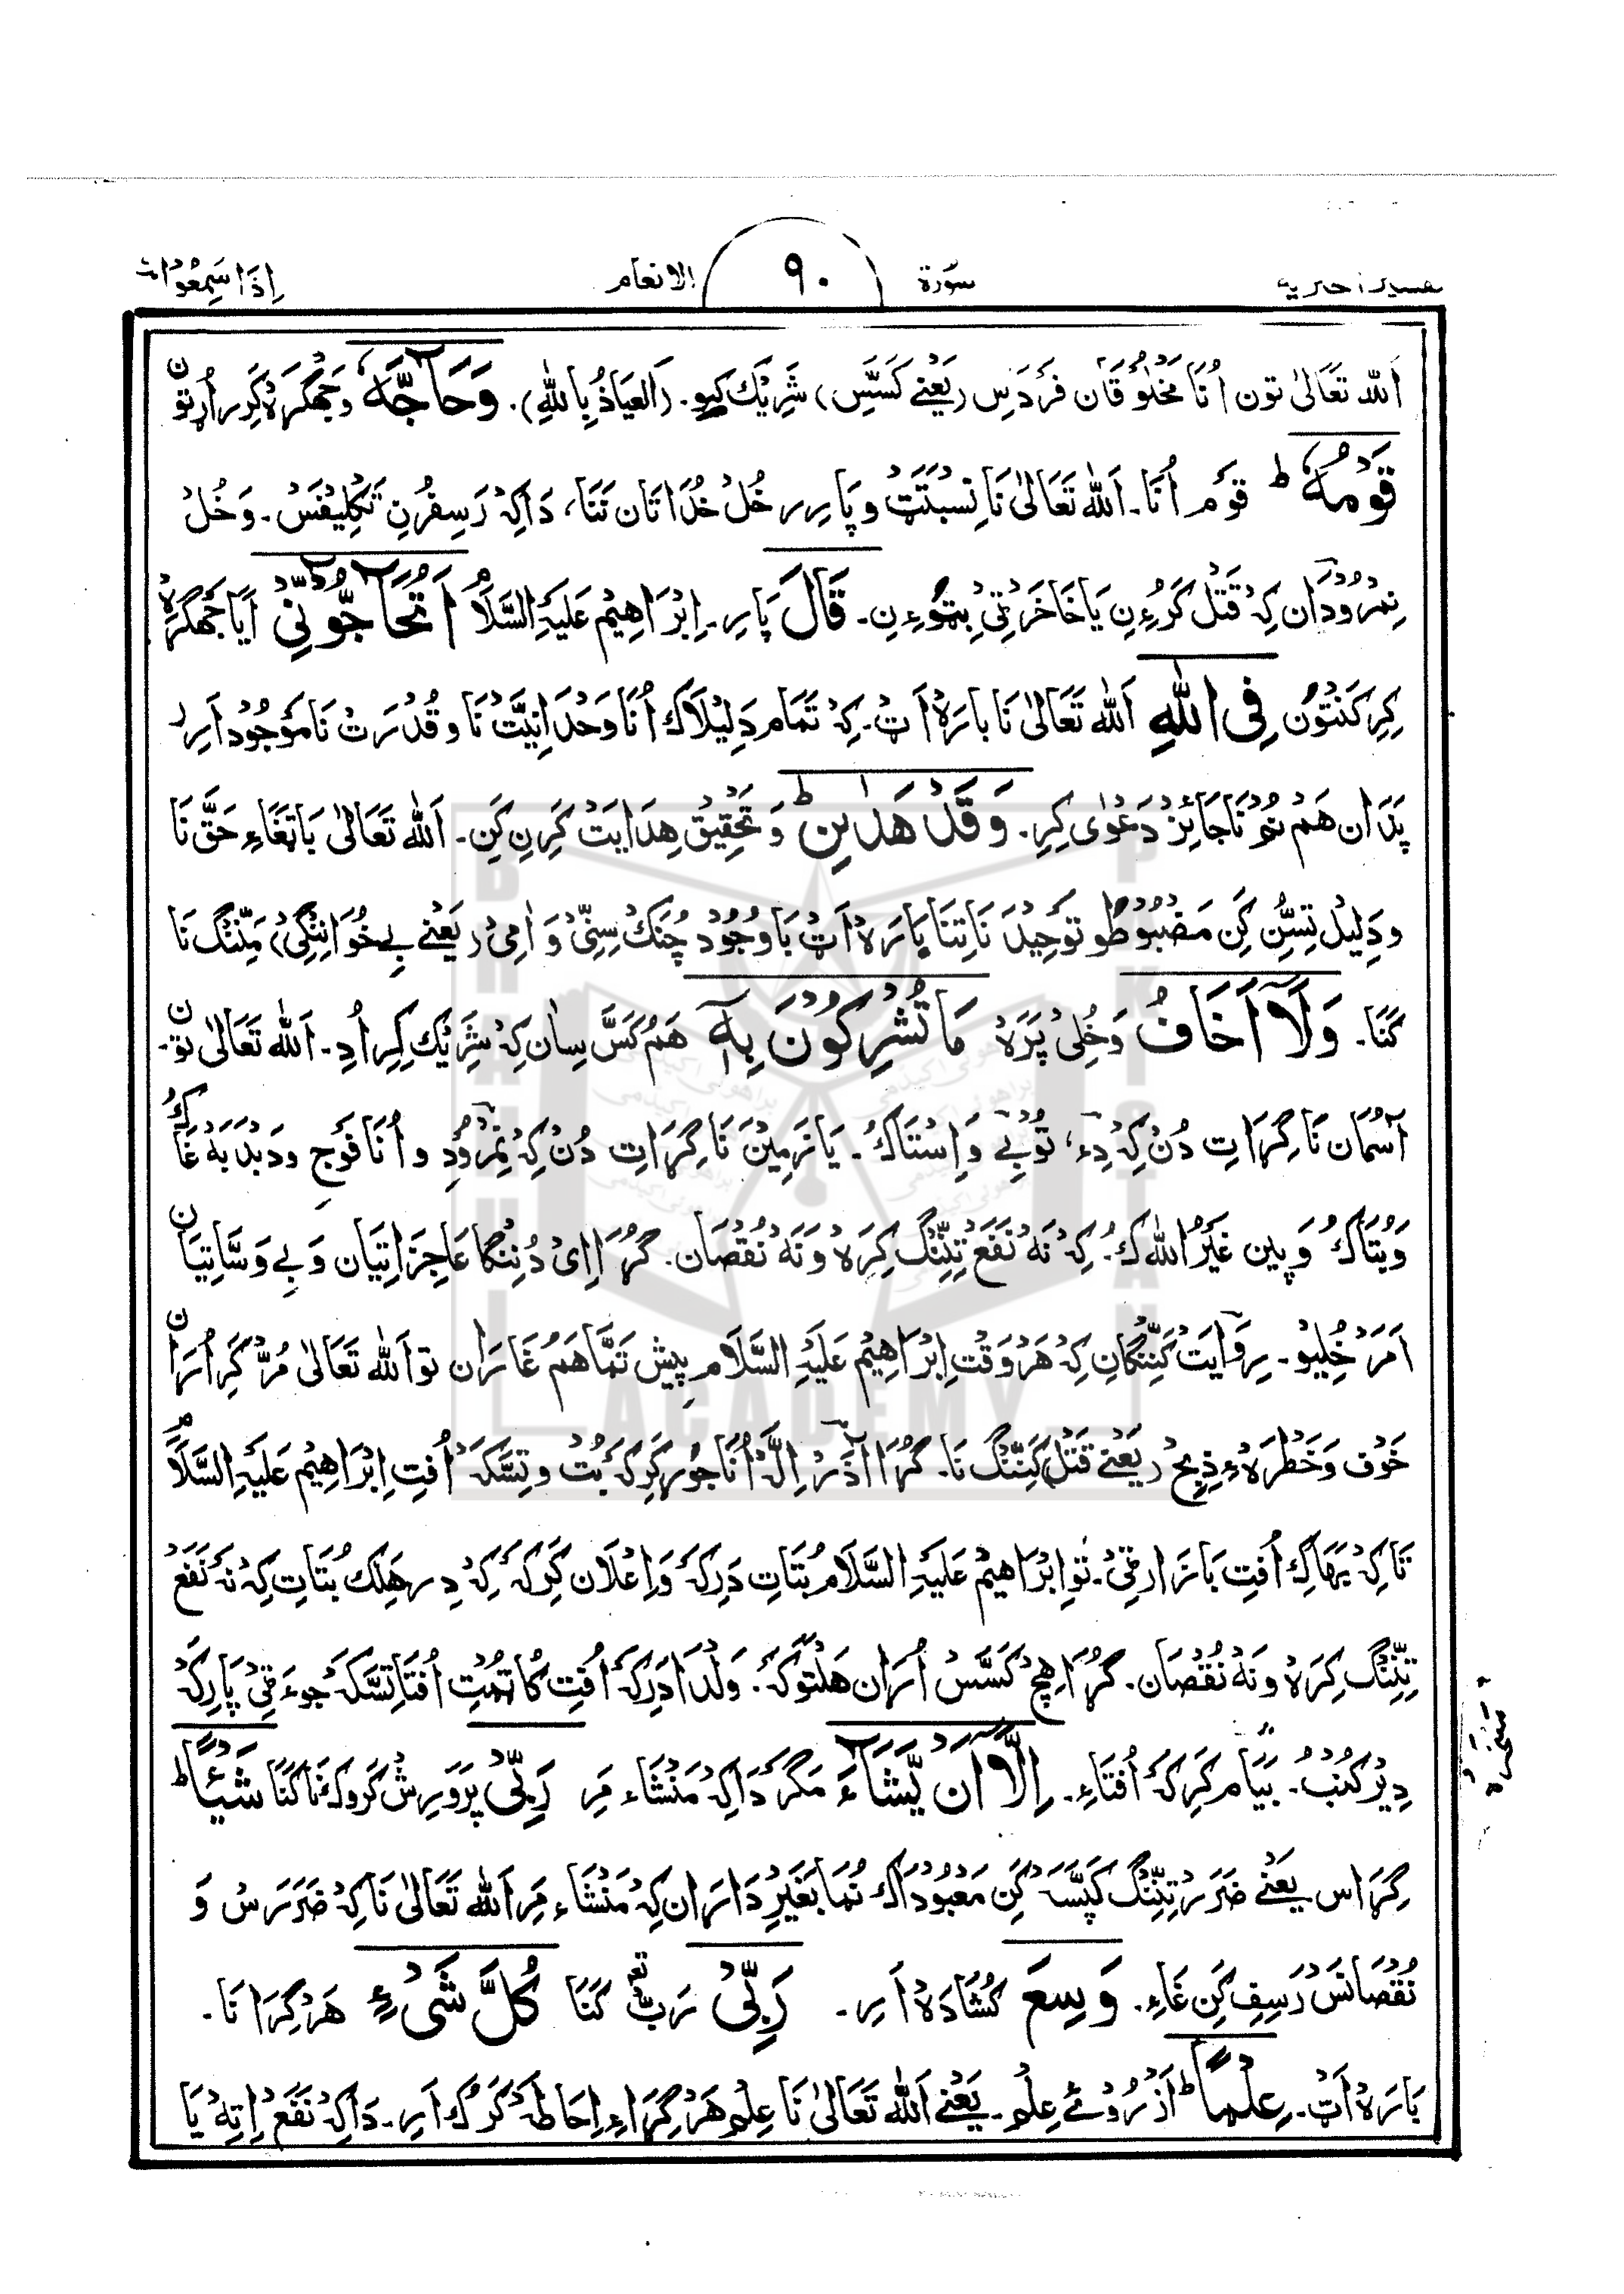 تفسیر احمدیه سورة ٩٠ الانعام اِذَا سَمِعُوْا
اَللّٰه تَعَالیٰ تون اُنَا مَخْلُوْقَان فَرْدَسِ (یَعْنِے كَسَّسِ) شَرِیْك كِیو۔ (اَلعِیَاذُ بِاللّٰهِ)۔ وَحَآجَّهٗ وَجَھگَرَہ كَرِیر اُرتون
قَوْمُهٗ ط قَوْم اُنَا۔ اَللّٰه تَعَالیٰ نَا نِسْبَتَٹ وپَارِیر خُلْ خُدَاتَان تَنَا، دَاكِه رَسِفُرنِ تَكلِیفَس۔ وَخُلْ
نِمْرُوْدَان كِه قَتْل كَرُءِنِ یَا خَاخَرٹِی بِٹوءِنِ۔ قَالَ پَارِ۔ اِبْرَاهِیْم عَلَیْهِ السَّلَام اَتُحَآجُّوْٓنِّیْ آیَا جَھگَرَہ
كِرِ كَنتُون فِی اللّٰهِ اَللّٰه تَعَالیٰ نَا بارَہ اَٹ۔ كِه تَمَام دَلِیْلَاك اُنَا وَحْدَانِیَّت نَا و قُدْرَتْ نَا مَوْجُوْد اَرِیر
پَدَان هَمْ نُم نَاجَائِز دَعْوٰی كِرِ۔ وَقَدْ هَدٰىنِ ط وَ تَحْقِیْق هِدَایَتْ كَرِن كَنِ۔ اَللّٰه تَعَالیٰ پَاتِغَاءِ حَقْ نَا
و دَلِیْل تِسُّن كَنِ مَضْبُوْطُو تَوْحِیْد نَا تِنَا بَارَہ اَٹ بَا وُجُوْد چُنَك سِنِّیْ وَ اُمِیْ (یَعْنِے بے خُوَانَنگِیْ) مَنِّنگ نَا
كَنَا۔ وَلَآ اَخَافُ وَخُلِیْ پَرَہ مَا تُشْرِكُوْنَ بِهٖٓ هَمُ كَسَّ سِان كِه شَرِیْك كِرِ اُدِ۔ اَللّٰه تَعَالیٰ تون۔
آسْمَان نَا گِرَاتِ دُن كِه دِءِ، تُوبے وَ اِسْتَاكُ۔ یَا زَمِیْن نَا گِرَاتِ دُن كِه نِمْرُودِ و اُنَا فَوج ودَبْدَبَه غَاكُ
وَبُتَاكُ وَ پین غَیْرُ اللّٰه كُ۔ كِه نَه نَفَعْ تِنِّنگ كِرَہ وَنَه نُقْصَان۔ گُرَا اِیْ دُنِنگَا عَاجِزَاتِیَان وَبے وَسَّاتِیَان
اَمَر خُلِیو۔ رِوَایَت كَنِّنگَانِ كِه هَرْ وَقْت اِبْرَاهِیْم عَلَیْهِ السَّلَام پِیش تَمَّا هَمُ غَارَان تو اَللّٰه تَعَالیٰ مُرْ كَرِ اُرَان
خَوْف وَخَطْرَہ ءِ ذِبْح (یَعْنِے قَتْل) كَنِّنگ نَا۔ گُرَا آذَرْ اِلَّہ اُنَا جوڑ كَرِكَہ بُت و تِسَّكَہ اُفتِ اِبْرَاهِیْم عَلَیْهِ السَّلَام
تَا كِه بَھاكِ اُفتِ بَازَار ٹِی۔ تو اِبْرَاهِیْم عَلَیْهِ السَّلَام بُتَاتِ دَرِكَہ وَ اِعْلَان كَرِكَہ كِه دِر هَلِك بُتَاتِ كِه نَه نَفَعْ
تِنِّنگ كِرَہ وَنَه نُقْصَان۔ گُرَا هِیچْ كَسَّسْ اُرَان هَلتَوكَہ۔ وَلْدَا دَرِكَہ اُفتِ كَاتُمْتِ اُفتَا تِسَّكَہ جوءَ ٹِی پَارِكَہ
دِیْر كُنبُ۔ بَیَام كَرِكَہ اُفتَاءِ۔ اِلَّآ اَنْ یَّشَآءَ مَگَر دَاكِه مَنْشَاء مَرِ رَبِّیْ پَرْوَرِش كَرُوك نَا كَنَا شَیْـًٔا ط
گِرَاس یَعْنِے ضَرَر تِنِّنگ كَپَسَ كَنِ مَعْبُوْدَاك نُمَا بَغَیْرِ دَارَان كِه مَنْشَاء مَرِ اَللّٰه تَعَالیٰ نَا كِه ضَرَرَسْ وَ
نُقْصَانَسْ رَسِفِ كَنِ غَاءِ۔ وَسِعَ كُشَادَہ اَرِ۔ رَبِّیْ رَبّ كَنَا كُلَّ شَیْءٍ هَر گِرَا نَا۔
بَارَہ اَٹ۔ عِلْمًا ط اَز رُوْئے عِلْم۔ یَعْنِے اَللّٰه تَعَالیٰ نَا عِلْم هَر گِرَاءِ اِحَاطَه كَرُك اَرِ۔ دَاكِه نَفَعْ اِتِهْ یَا